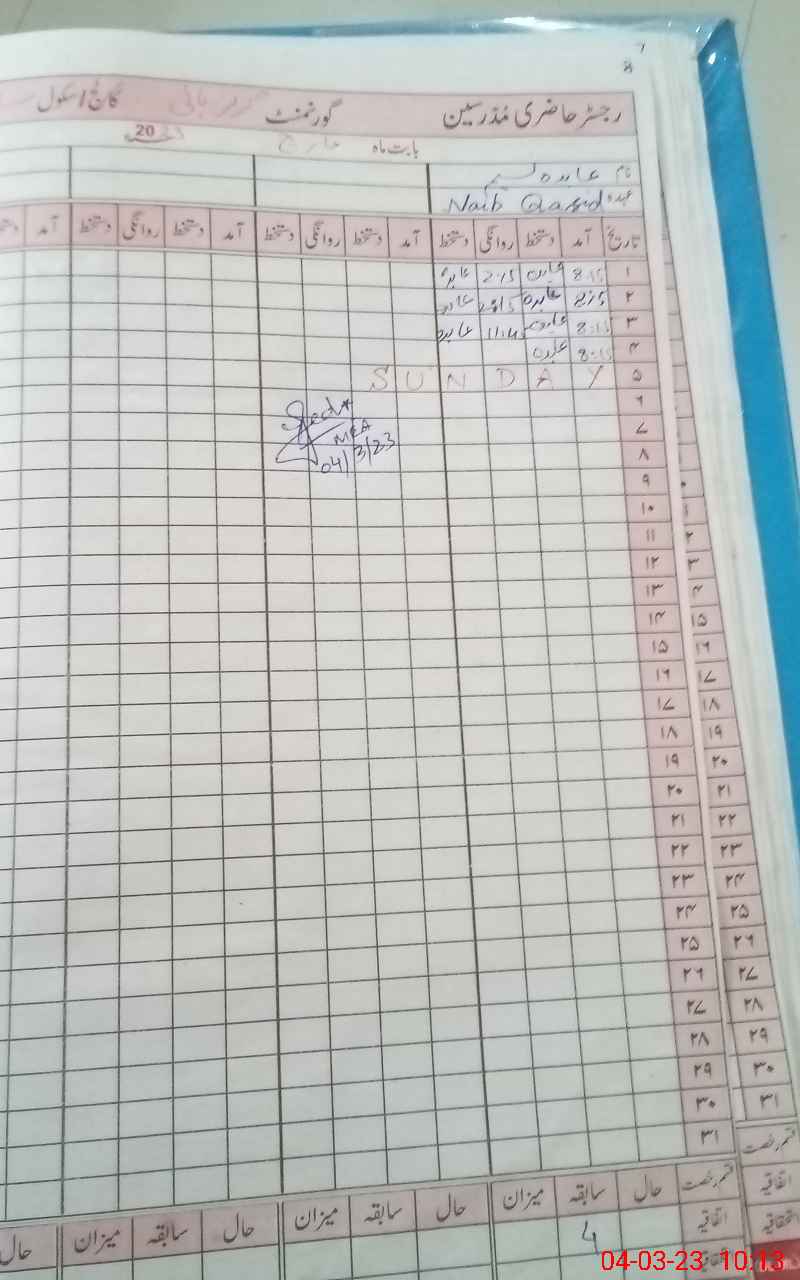 ۷
۸
رجسٹر حاضری مُدرسین گورنمنٹ گرلز ہائی کالج/سکول
بابت ماہ مارچ 20
نام عابدہ نسیم
عہدہ Naib Qasid
تاریخ آمد دستخط روانگی دستخط آمد دستخط روانگی دستخط آمد دستخط روانگی دستخط آمد دستخط
۱ 8:15 عابدہ 2:15 عابدہ
۲ 8:15 عابدہ 2:15 عابدہ
۳ 8:15 عابدہ 11:45 عابدہ
۴ 8:15 عابدہ
۵ SUNDAY
۶
۷
MEA
04/3/23
۸
۹
۱۰
۱۱
۱۲
۱۳
۱۴
۱۵
۱۶
۱۷
۱۸
۱۹
۲۰
۲۱
۲۲
۲۳
۲۴
۲۵
۲۶
۲۷
۲۸
۲۹
۳۰
۳۱
۱
۲
۳
۴
۱۵
۱۶
۱۷
۱۸
۱۹
۲۰
۲۱
۲۲
۲۳
۲۴
۲۵
۲۶
۲۷
۲۸
۲۹
۳۰
۳۱
قسم رخصت
اتفاقیہ
استحقاقیہ
قسم رخصت حال سابقہ میزان حال سابقہ میزان حال سابقہ میزان حال
اتفاقیہ 4
04-03-23 10:13